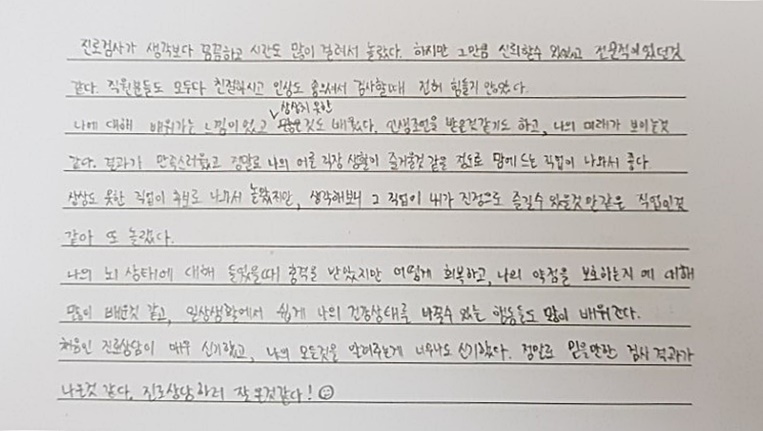 진로검사가 생각보다 꼼꼼하고 시간도 많이 걸려서 놀랐다. 하지만 그만큼 신뢰할수 있었고 전문적이었던것
같다. 직원분들도 모두다 친절하시고 인상도 좋으셔서 검사할때 전혀 힘들지 않았다.
상상치 못한
나에 대해 배워가는 느낌이 있고 것도 배웠다. 인생조언을 받은것같기도 하고, 나의 미래가 보이는것
같다. 결과가 만족스러웠고 정말로 나의 어른 직장 생활이 즐거울것 같을 정도로 맘에 드는 직업이 나와서 좋다.
상상도 못한 직업이 후보로 나와서 놀랐지만, 생각해보니 그 직업이 내가 진정으로 즐길수 있을것만 같은 직업인것
같아 또 놀랐다.
나의 뇌 상태에 대해 들었을때 충격을 받았지만 어떻게 회복하고, 나의 약점을 보호하는지 에 대해
많이 배운것 같고, 일상생활에서 쉽게 나의 건강상태를 바꿀수 있는 행동들도 많이 배워간다.
처음인 진로상담이 매우 신기했고, 나의 모든것을 알려주는게 너무나도 신기했다. 정말로 믿을만한 검사 결과가
나온것 같다. 진로상담하러 잘 온것같다!